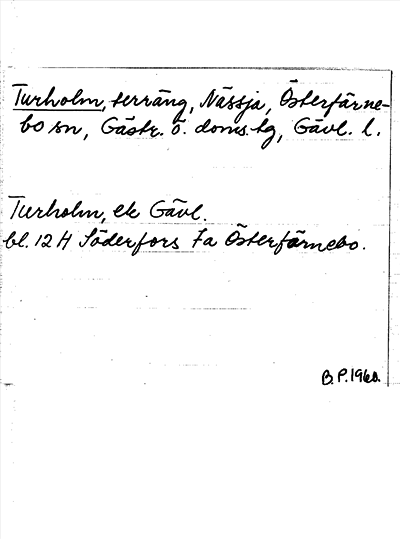 Turholm, terräng, Nässja, Österfärne-
bo sn, Gästr. ö. doms.tg, Gävl. l.
Turholm, ek Gävl.
bl. 12 H Söderfors 7a Österfärnebo.
B.P. 1960.